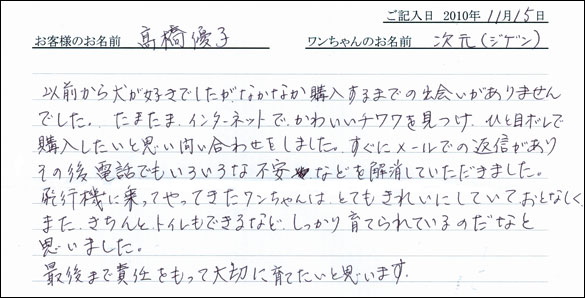 ご記入日 2010年 11月15日
お客様のお名前 高橋優子 ワンちゃんのお名前 次元(ジゲン)
以前から犬が好きでしたがなかなか購入するまでの出会いがありません
でした。たまたま、インターネットで、かわいいチワワを見つけ、ひと目ボレで
購入したいと思い問い合わせをしました。すぐにメールでの返信があり
その後電話でもいろいろな不安などを解消していただきました。
飛行機に乗ってやってきたワンちゃんは、とてもきれいにしていておとなしく、
また、きちんとトイレもできるなど、しっかり育てられているのだなと
思いました。
最後まで責任をもって大切に育てたいと思います。